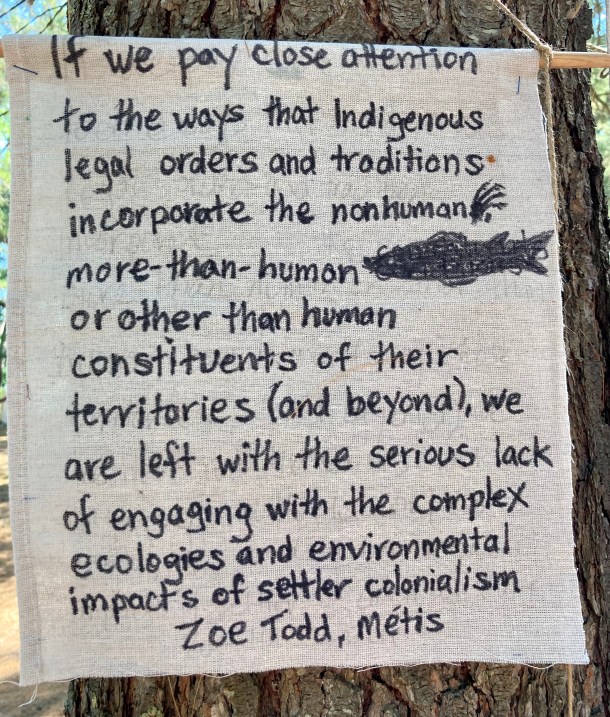 If we pay close attention
to the ways that Indigenous
legal orders and traditions
incorporate the nonhuman,
more-than-human
or other than human
constituents of their
territories (and beyond), we
are left with the serious lack
of engaging with the complex
ecologies and environmental
impacts of settler colonialism
Zoe Todd, Métis